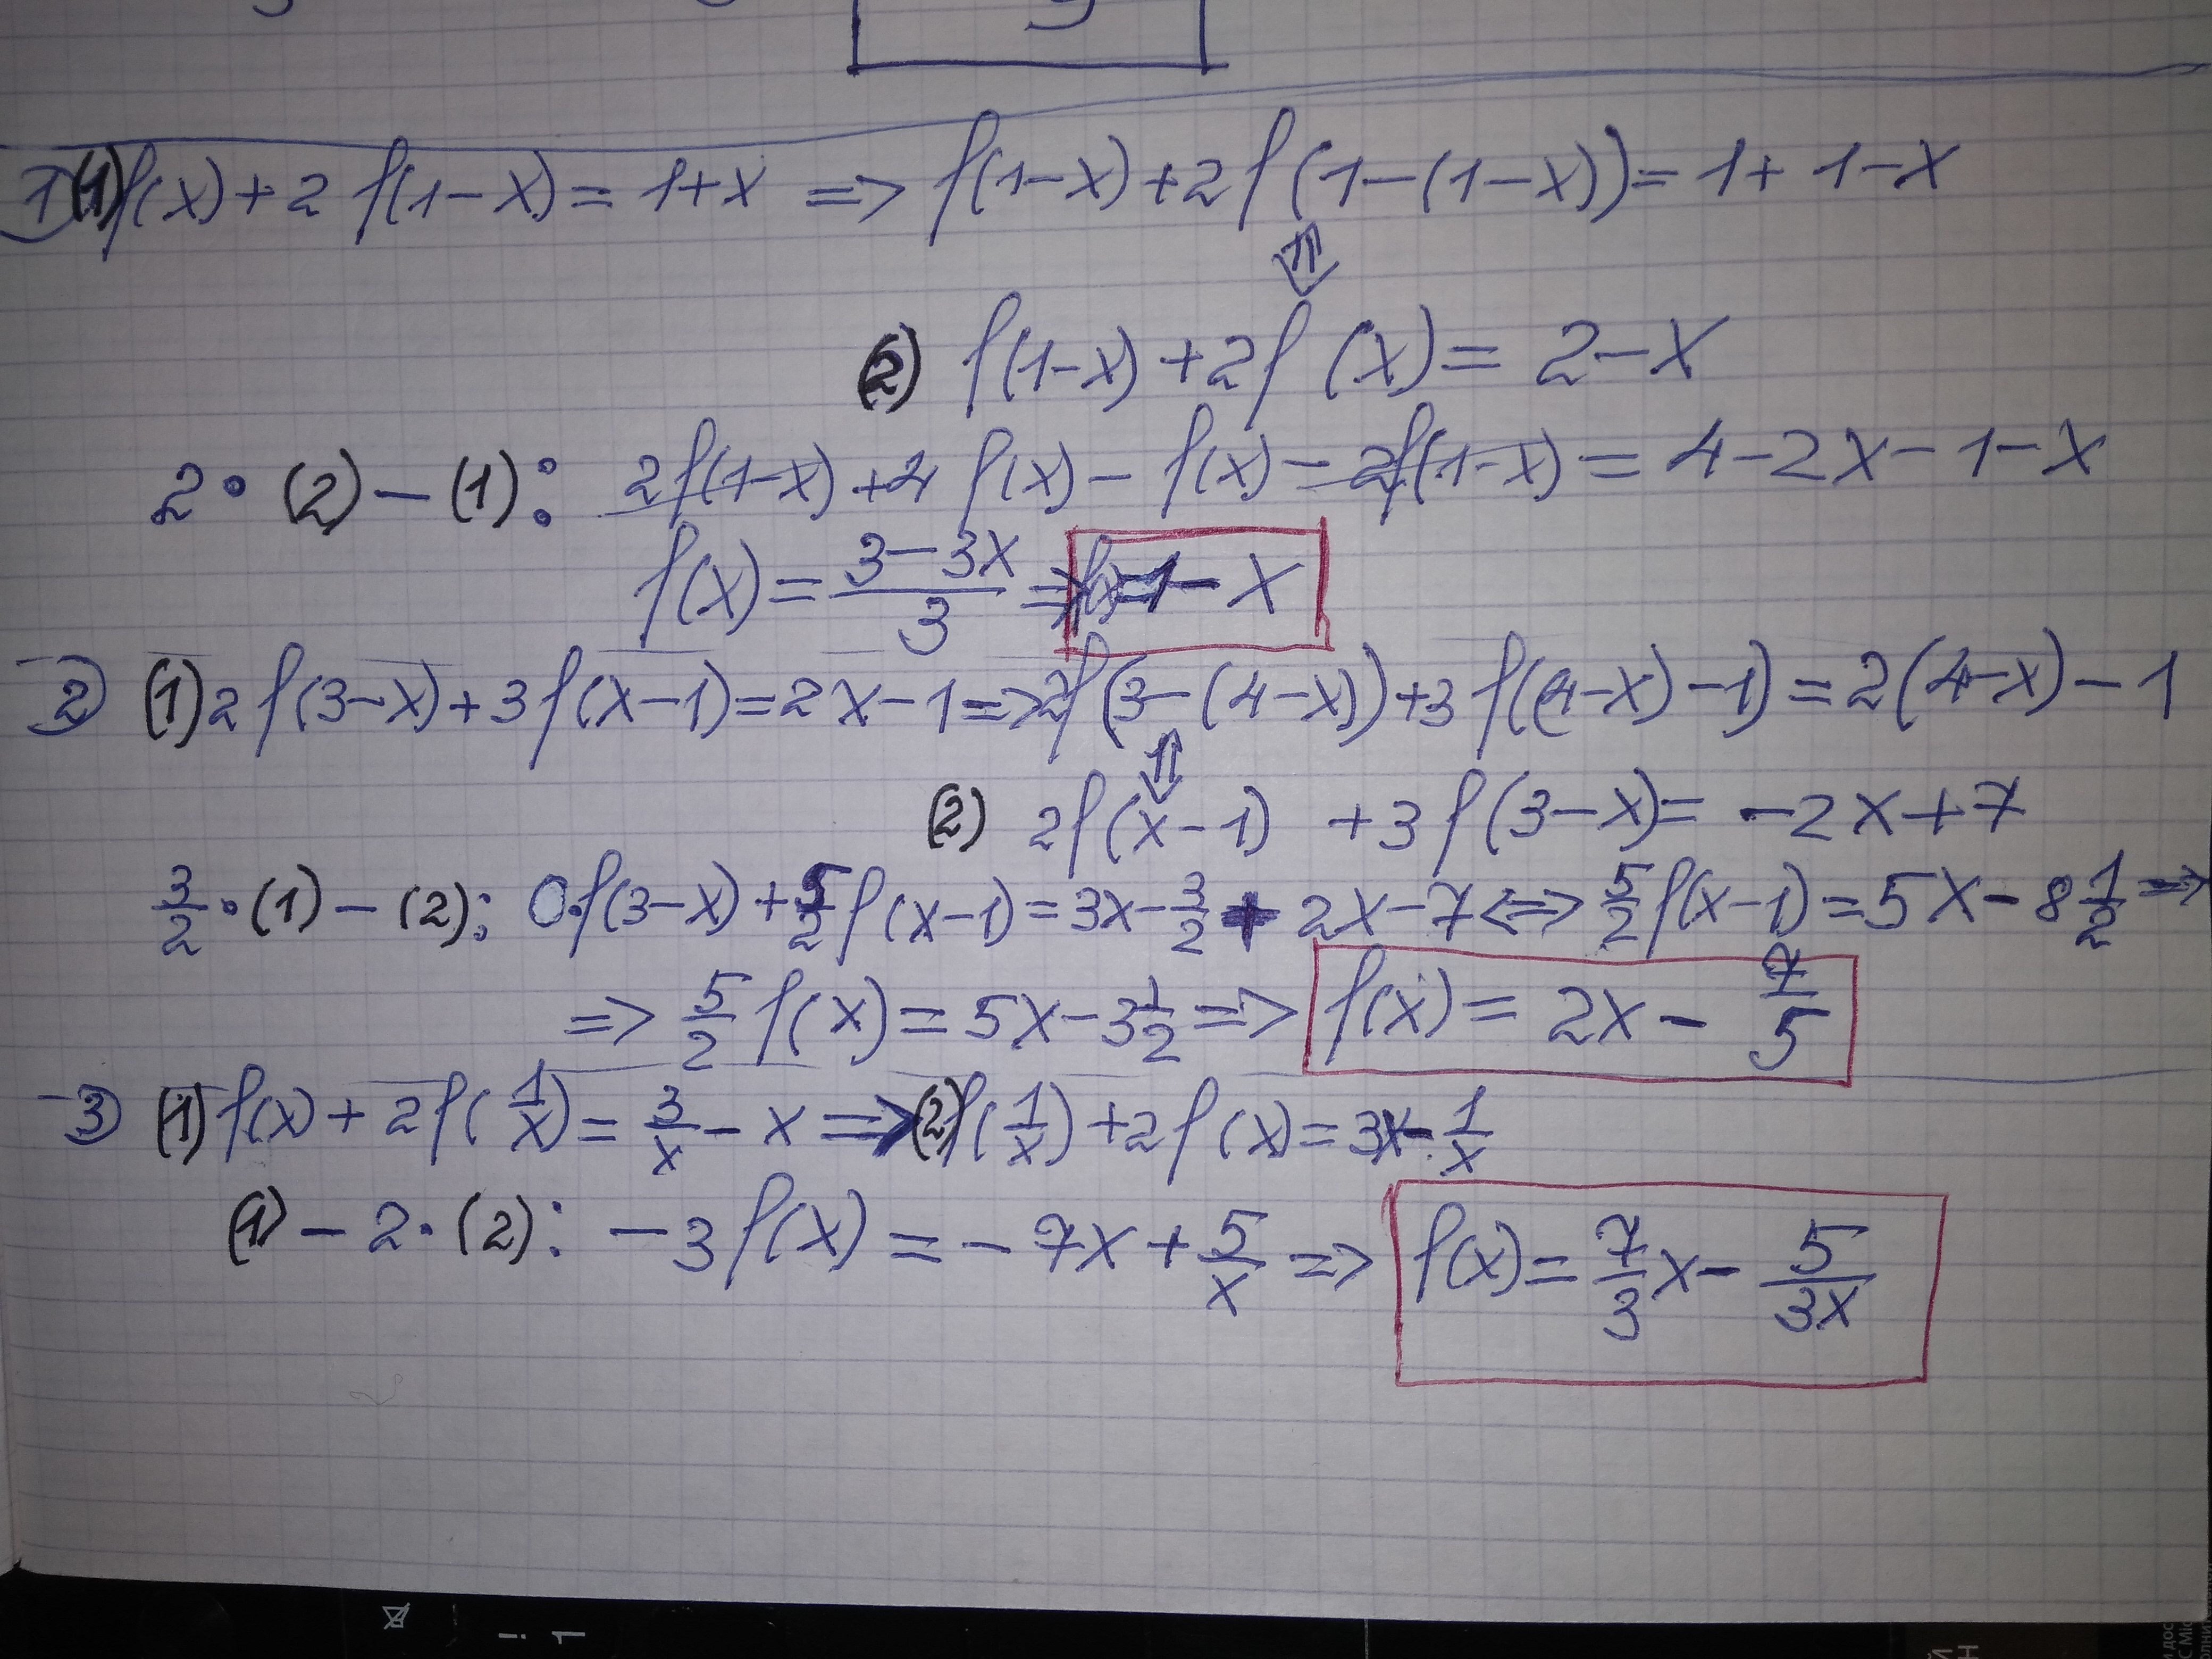 1) (1) f(x)+2 f(1-x)= 1+x => f(1-x)+2f(1-(1-x))= 1+ 1-x
⇕
(2) f(1-x)+2f (x)= 2-x
2•(2)-(1): 2f(1-x)+4 f(x)- f(x)-2f(1-x)= 4-2x-1-x
f(x)= \frac{3-3x}{3} => f(x)=1-x
2) (1) 2f(3-x)+3f(x-1)=2x-1=>2f(3-(4-x))+3f((4-x)-1)=2(4-x)-1
⇕
(2) 2f(x-1) +3f(3-x)= -2x+7
\frac{3}{2}•(1)-(2): 0•f(3-x)+\frac{5}{2}f(x-1)=3x-\frac{3}{2}+2x-7<=>\frac{5}{2}f(x-1)=5x-8\frac{1}{2}=>
=> \frac{5}{2}f(x)=5x-3\frac{1}{2}=> f(x)= 2x-\frac{7}{5}
3) (1) f(x)+2f(\frac{1}{x})=\frac{3}{x}-x=>(2)f(\frac{1}{x})+2f(x)=3x-\frac{1}{x}
(1)-2•(2): -3f(x)=-7x+\frac{5}{x}=> f(x)=\frac{7}{3}x-\frac{5}{3x}